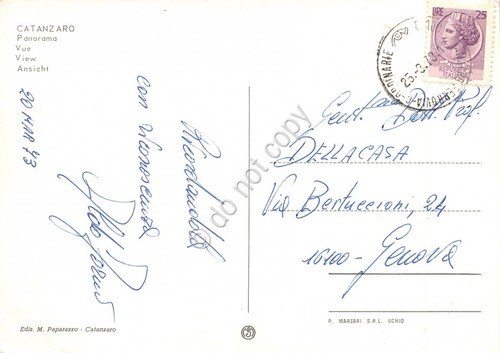 CATANZARO
Panorama
Vue
View
Ansicht
20 MAR 73
Ricordandola
con riconoscenza
Aldo
LIRE 25
ORDINARIE
25-3-73
Dott. Prof.
DELLACASA
Via Bertuccioni, 24
16100- Genova
© do not copy
Ediz. M. Paparazzo - Catanzaro
P. MARZARI S.R.L. SCHIO